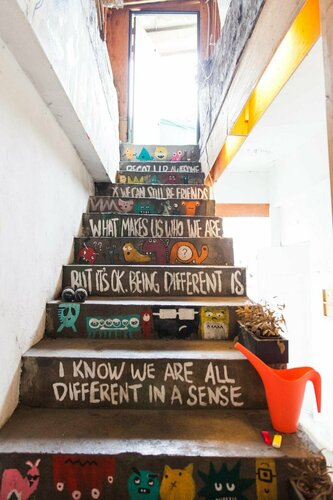 I KNOW WE ARE ALL
DIFFERENT IN A SENSE
BUT IT'S OK. BEING DIFFERENT IS
WHAT MAKES US WHO WE ARE
X WE CAN STILL BE FRIENDS
BECOZ U R AWESOME